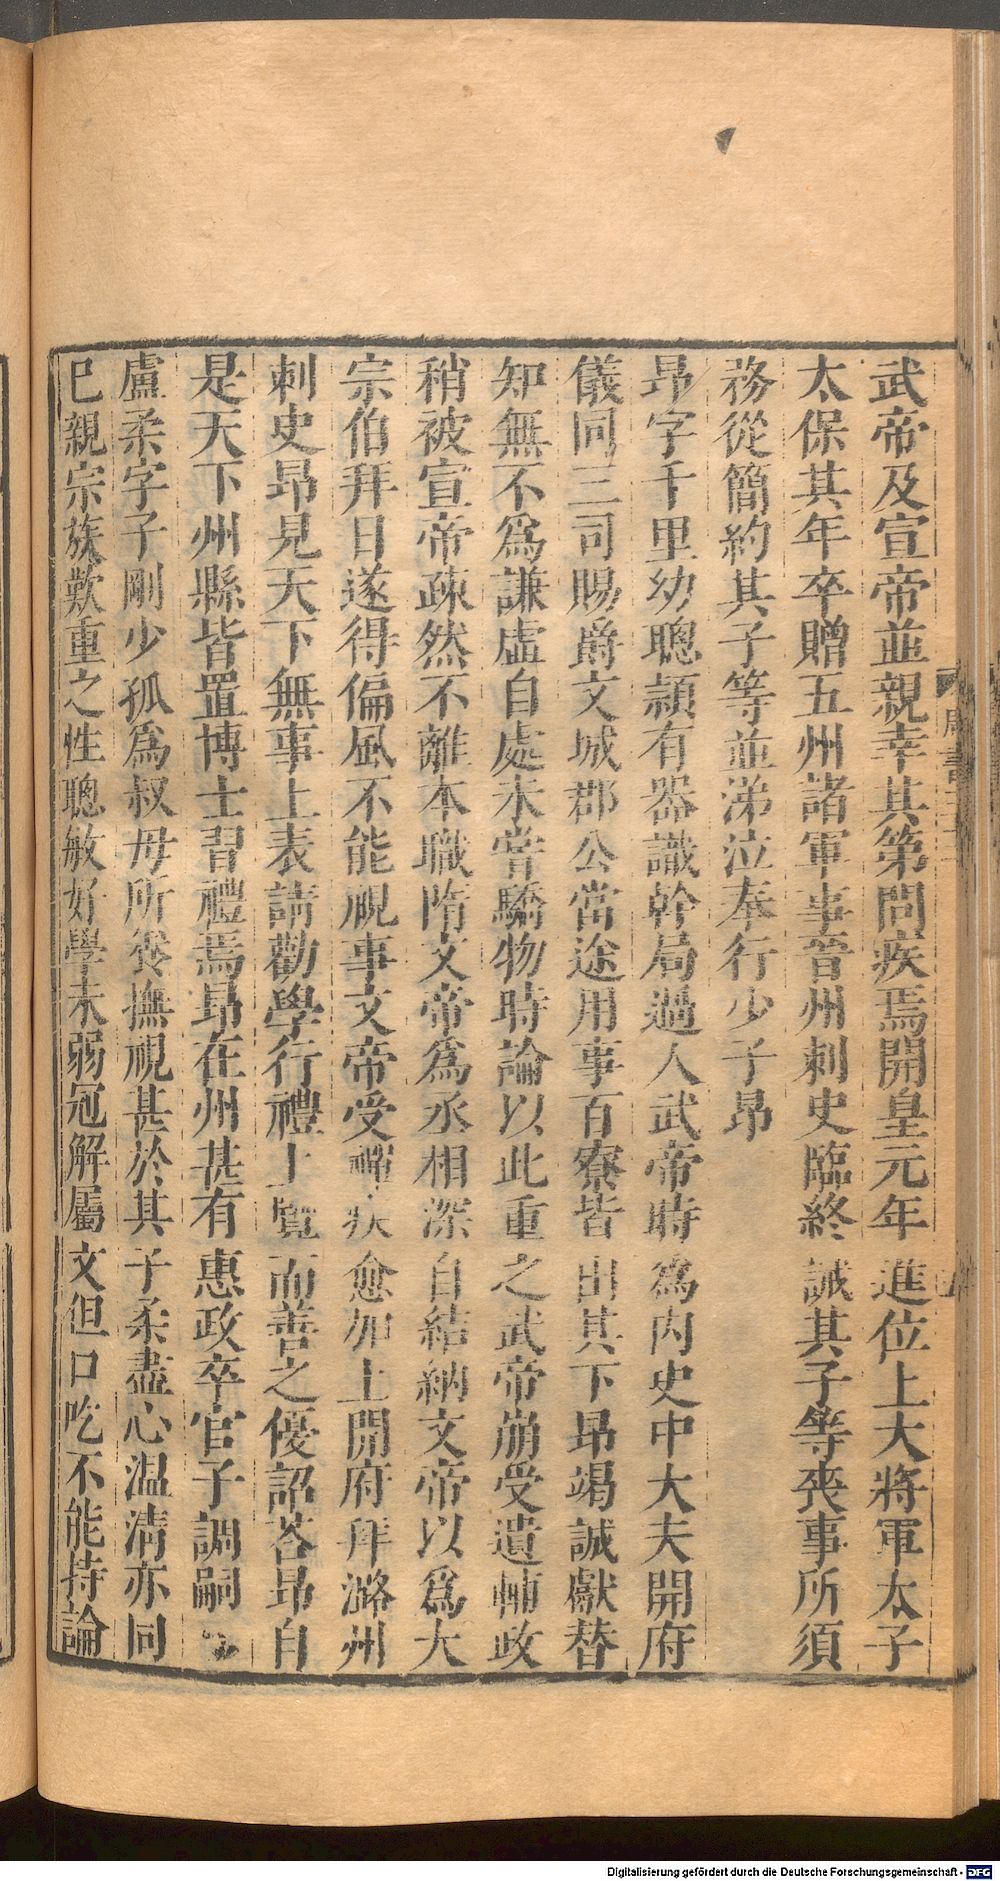 武帝及宣帝並親幸其第問疾焉開皇元年進位上大將軍太子
太保其年卒贈五州諸軍事晉州刺史臨終誡其子等喪事所須
務從簡約其子等並涕泣奉行少子昂
昂字千里幼聰頴有器識幹局過人武帝時爲內史中大夫開府
儀同三司賜爵文城郡公當途用事百寮皆出其下昂竭誠獻替
知無不爲謙虛自處未嘗驕物時論以此重之武帝崩受遺輔政
稍被宣帝疎然不離本職隋文帝爲丞相深自結納文帝以爲大
宗伯拜日遂得偏風不能視事文帝受禪疾愈加上開府拜潞州
刺史昂見天下無事上表請勸學行禮上覽而善之優詔荅昂自
是天下州縣皆置博士習禮焉昂在州甚有惠政卒官子調嗣
盧柔字子剛少孤爲叔母所養撫視甚於其子柔盡心温凊亦同
巳親宗族歎重之性聰敏好學未弱冠解屬文但口吃不能持論
周書三十二
Digitalisierung gefördert durch die Deutsche Forschungsgemeinschaft - DFG